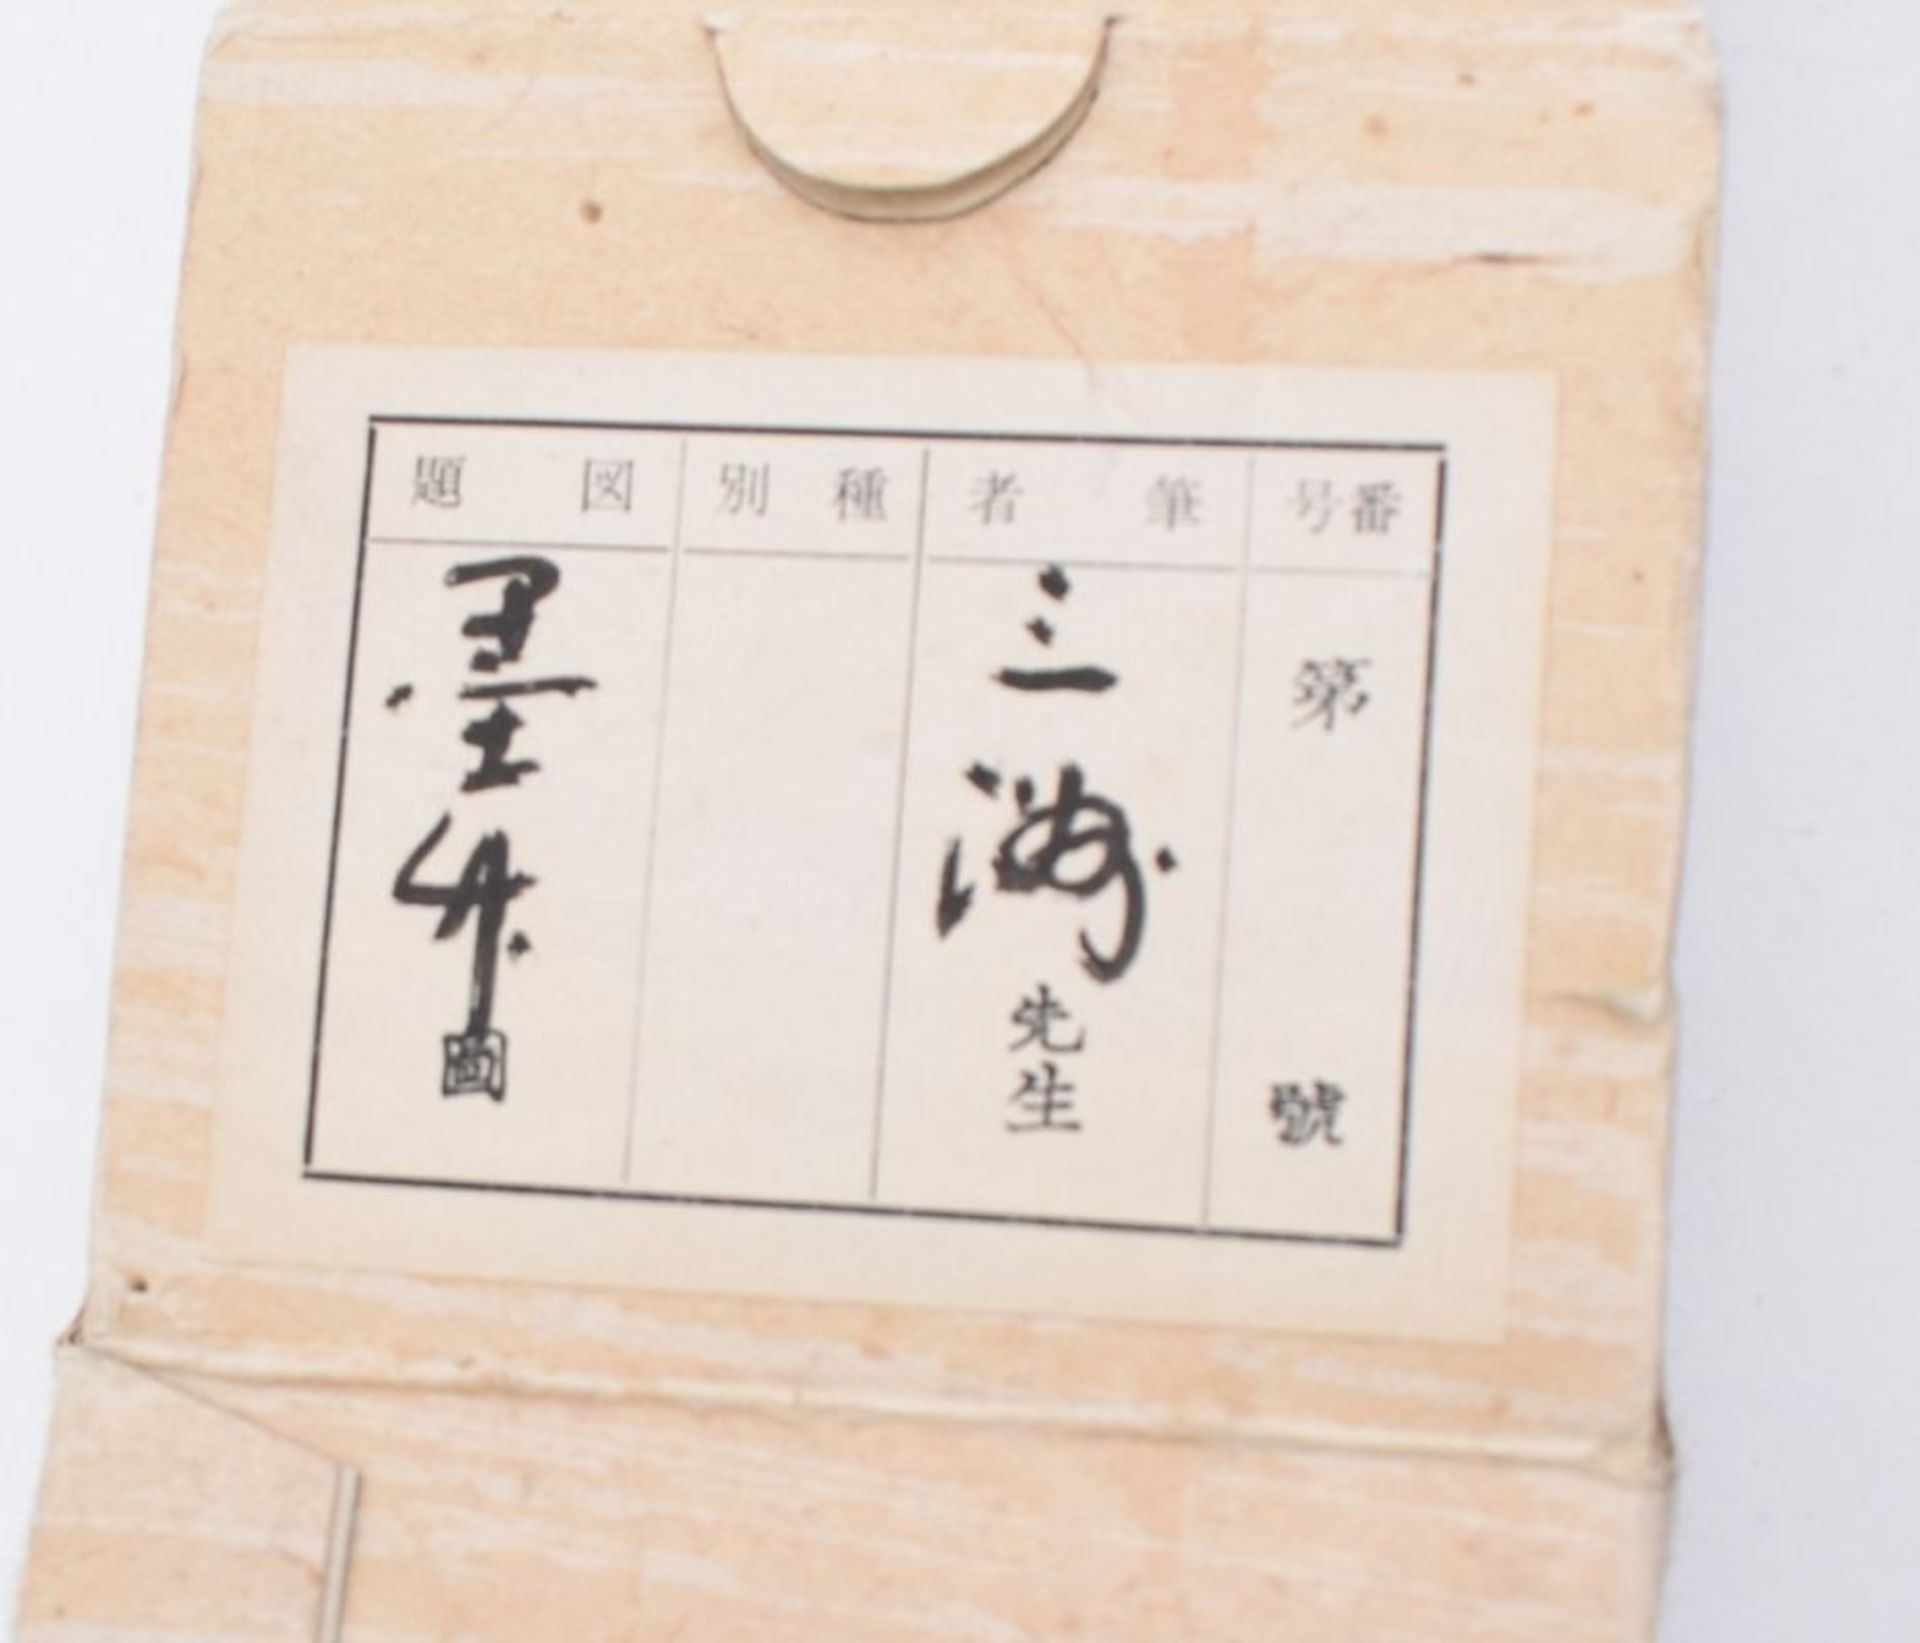 番号 筆者 種別 図題
第 號
三洲先生
墨竹圖